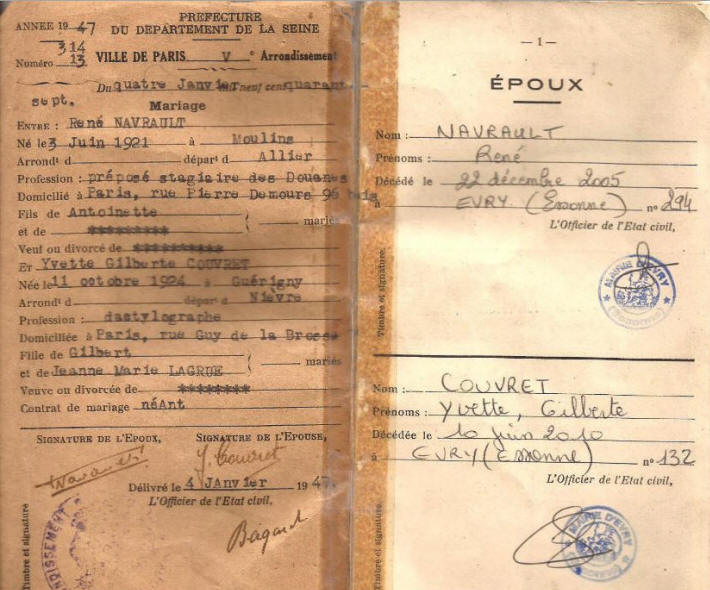 PREFECTURE
ANNEE 1947 DU DEPARTEMENT DE LA SEINE
314
Numéro 13 VILLE DE PARIS V e Arrondissement
Du quatre Janvier neuf cent quarant
sept.
Mariage
ENTRE : René NAVRAULT
Né le 3 Juin 1921 à Moulins
Arrondt d départt d Allier
Profession : préposé stagiaire des Douanes
Domicilié à Paris, rue Pierre Demours 96 bis
Fils de Antoinette
et de ********** mariés
Veuf ou divorcé de **********
ET Yvette Gilberte COUVRET
Née le 11 octobre 1924 à Guérigny
Arrondt d départt d Nièvre
Profession : dactylographe
Domiciliée à Paris, rue Guy de la Brosse
Fille de Gilbert
et de Jeanne Marie LAGRUE mariés
Veuve ou divorcée de ********
Contrat de mariage néAnt
SIGNATURE DE L'EPOUX, SIGNATURE DE L'EPOUSE,
Navrault Y. Couvret
Délivré le 4 Janvier 1947
L'Officier de l'Etat civil,
Timbre et signature
— 1 —
ÉPOUX
Nom : NAVRAULT
Prénoms : René
Décédé le 22 décembre 2005
à EVRY (Essonne) n° 294
L'Officier de l'Etat civil,
MAIRIE D'EVRY
(Essonne)
Timbre et signature.
Nom : COUVRET
Prénoms : Yvette, Gilberte
Décédée le 10 juin 2010
à EVRY (Essonne) n° 132
L'Officier de l'Etat civil,
MAIRIE D'EVRY
(Essonne)
Timbre et signature